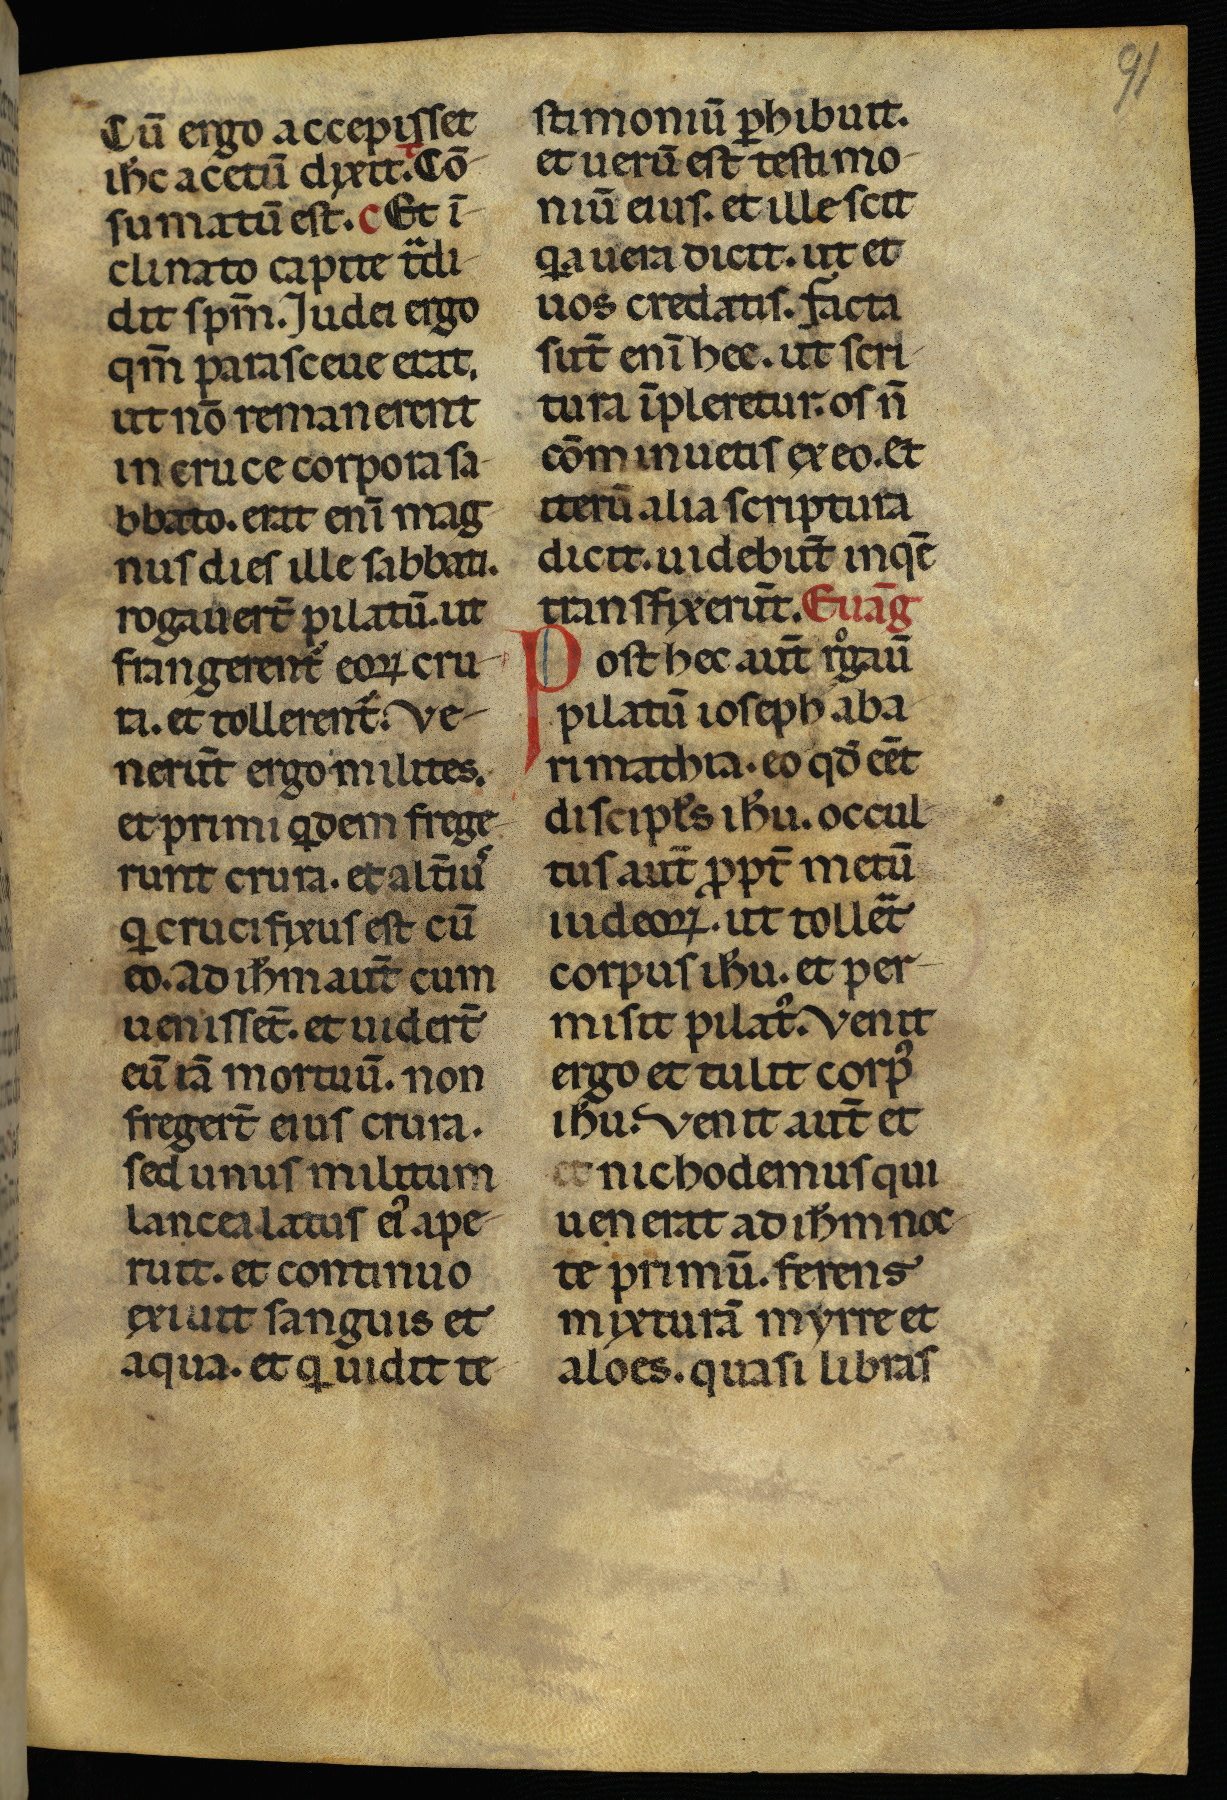 91
Cū ergo accepisset
ih̄c acetū dixit. ꞇ Cō-
sumatū est. c Et ī-
clinato capite tᵃdi-
dit spm̄. Judei ergo
qm̄ parasceue erat.
ut nō remanerent
in cruce corpora sa-
bbato. erat enī mag
nus dies ille sabbati.
rogauer̄t pilatū. ut
frangerent᷑ eoꝝ cru-
ra. et tollerent᷑. Ve-
nerūt ergo milites.
et primi qͥdem frege-
runt crura. et alt̄iuˢ
qͥ crucifixus est cū
eo. Ad ih̄m aut̄ cum
uenisset̄. et uider̄t
eū iā mortuū. non
freger̄t eius crura.
sed unus militum
lancea latus eiꝰ ape-
ruit. et continuo
exiuit sanguis et
aqua. et qͥ uidit te-
stimoniū ꝑhibuit.
et uerū est testimo-
niū eius. et ille scit
qͥa uera dicit. ut et
uos credatis. facta
sūt enī hec. ut̄ scri-
tura īpleretur. os n̄
cōminuetis ex eo. et
iterū alia scriptura
dicit. uidebūt inqᷓē
transfixerūt. Euāg
Post hec aut̄ rͦgauī
pilatū ioseph ab a
rimathia. eo qd̄ eēt
discipl̄s ih̄u. occul-
tus aut̄ ꝓpt̄ metū
iudeoꝝ. ut tolleᷓt
corpus ih̄u. et per-
misit pilatꝰ. Venit
ergo et tulit corpꝰ
ih̄u. Venit aut̄ et
et nichodemus qui
uenerat ad ih̄m noc-
te primū. ferens
mixturā myrre et
aloes. quasi libras